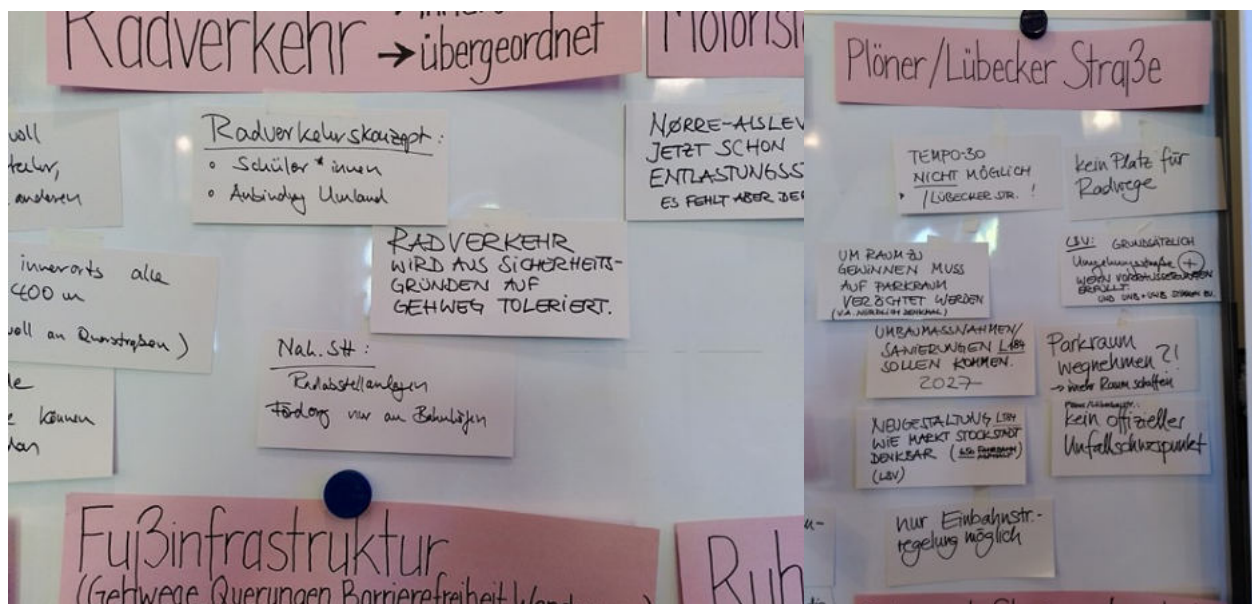 Radverkehr → übergeordnet
Motoris
voll
anderen
Radverkehrskonzept:
• Schüler*innen
• Anbindung Umland
NØRRE-AISLEV
JETZT SCHON
ENTLASTUNGSS
ES FEHLT ABER DER
RADVERKEHR
WIRD AUS SICHERHEITS-
GRÜNDEN AUF
GEHWEG TOLERIERT.
innerorts alle
400 m
voll an Querstraßen)
Nah.SH:
Radabstellanlagen
Förderg nur an Bahnhöfen
können
Fußinfrastruktur
(Gehwege Querungen Barrierefreiheit
Ruh
Plöner/Lübecker Straße
TEMPO-30
NICHT MÖGLICH
/LÜBECKER STR. !
kein Platz für
Radwege
UM RAUM ZU
GEWINNEN MUSS
AUF PARKRAUM
VERZICHTET WERDEN
(V.A. NÖRDLICH DENKMAL)
LSV: GRUNDSÄTZLICH
Umgehungsstraße +
WENN VORAUSSETZUNGEN
ERFÜLLT
UMBAUMASSNAHMEN/
SANIERUNGEN L184
SOLLEN KOMMEN.
2027
Parkraum
wegnehmen ?!
→ mehr Raum schaffen
NEUGESTALTUNG L184
WIE MARKT STOCKSTADT
DENKBAR
(LSV)
kein offizieller
Unfallschwerpunkt
nur Einbahnstr.-
regelung möglich